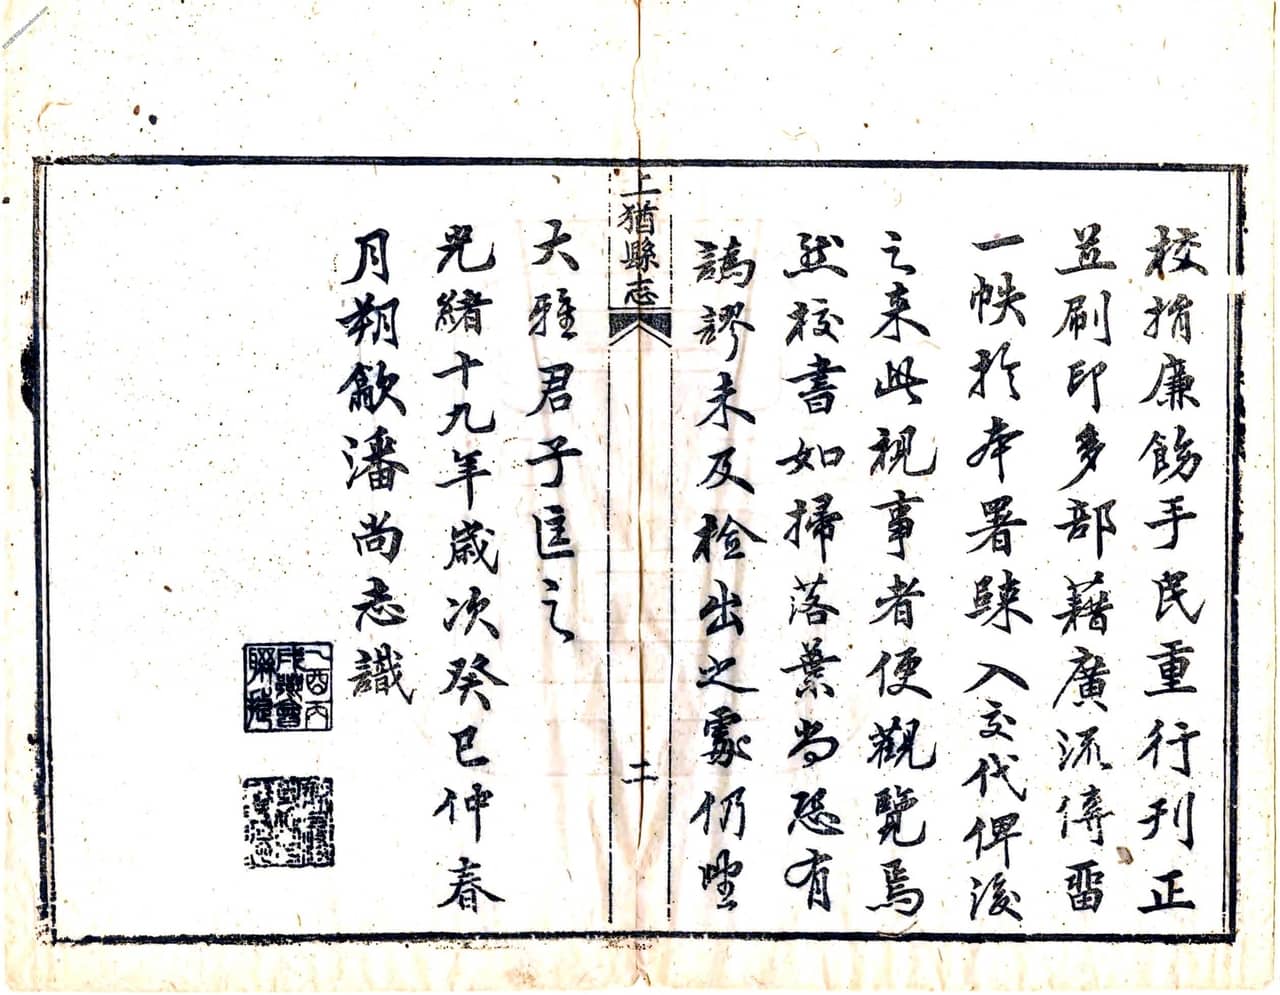 校捐廉飭手民重行刊正
並刷印多部藉廣流傳畱
一帙於本署隸入交代俾後
之來此視事者便觀覽焉
然校書如掃落葉尚恐有
譌謬未及檢出之處仍望
上猶縣志
二
大雅君子匡之
光緒十九年歲次癸巳仲春
月朔歙潘尚志識